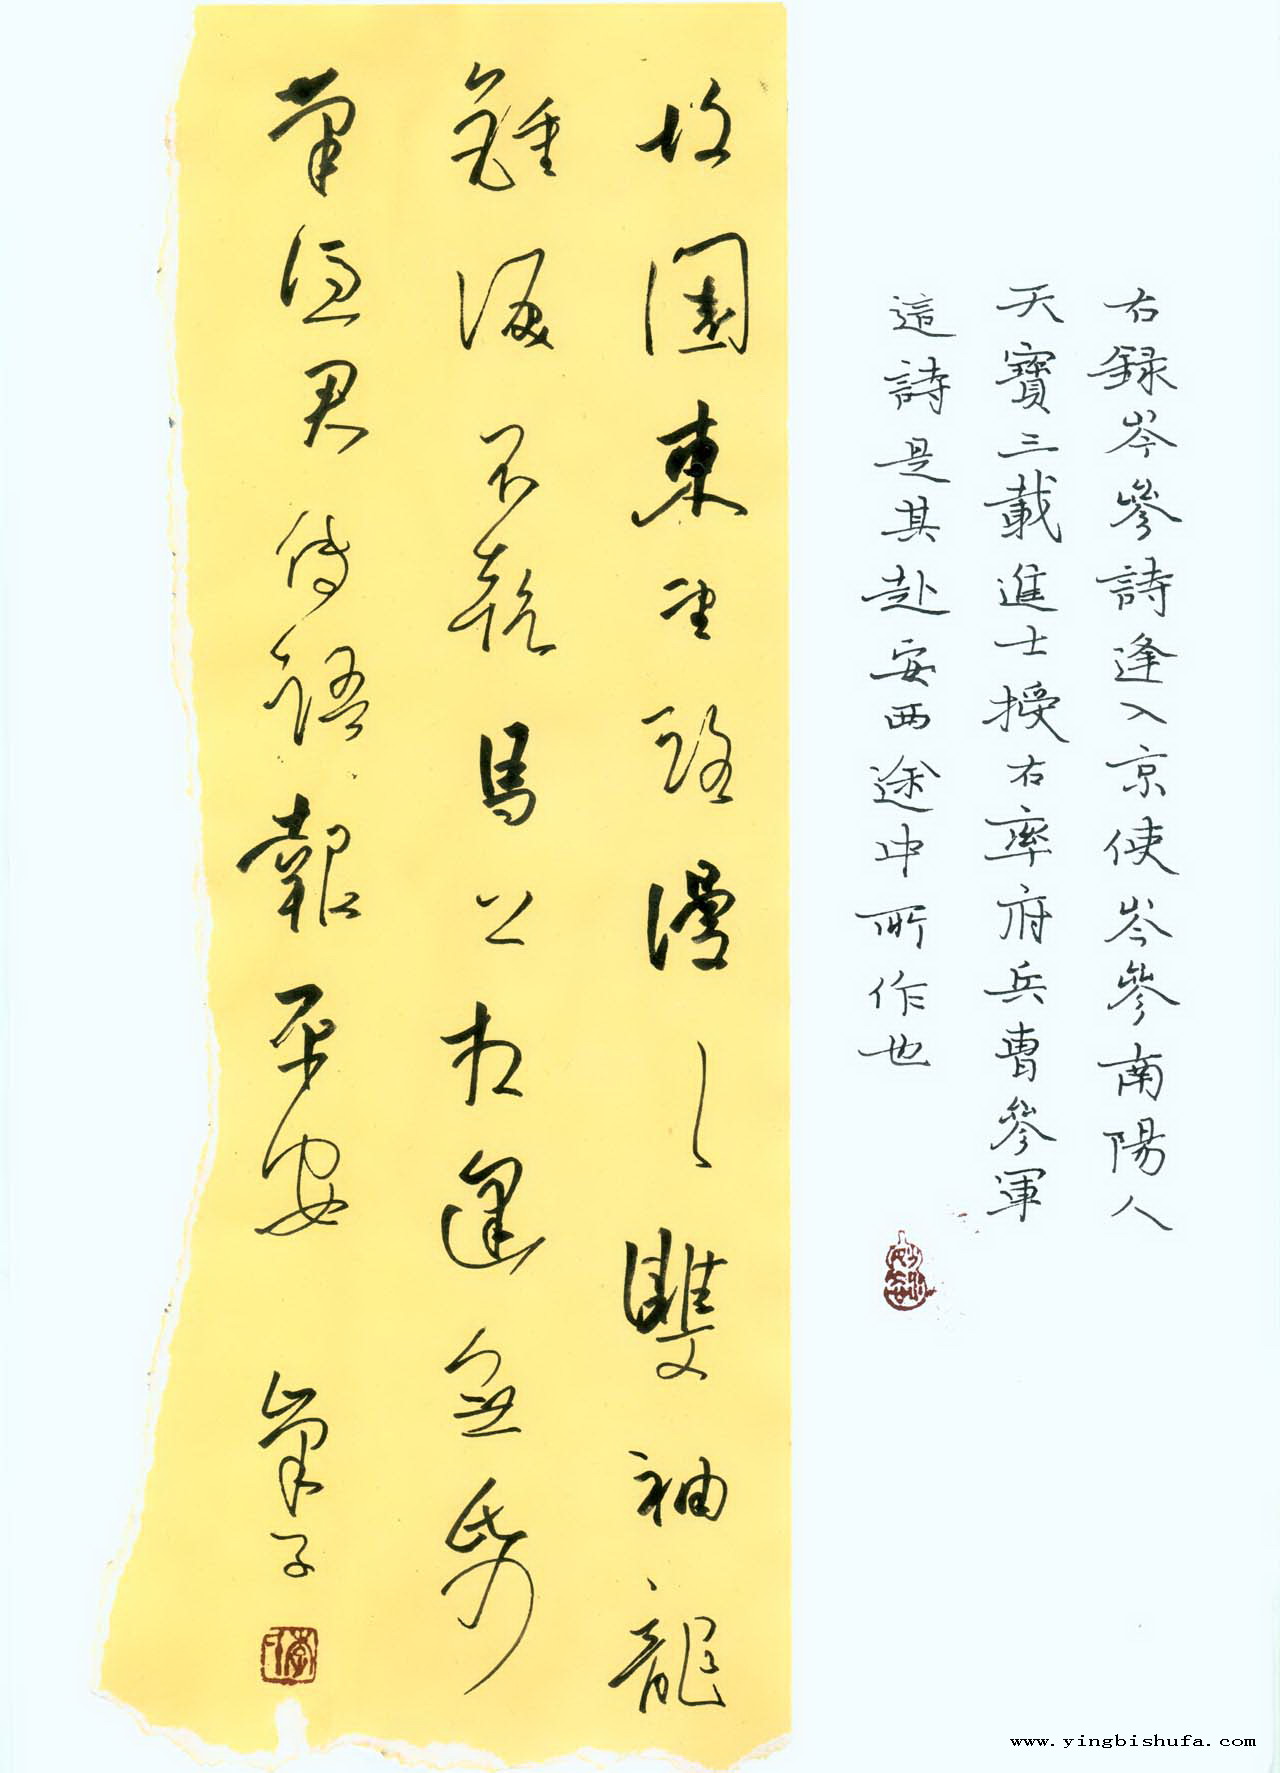 右録岑參詩逢入京使岑參南陽人
天寶三載進士授右率府兵曹參軍
這詩是其赴安西途中所作也
故園東望路漫〻雙袖龍
鍾淚不乾馬上相逢無紙
筆憑君傳語報平安
www.yingbishufa.com